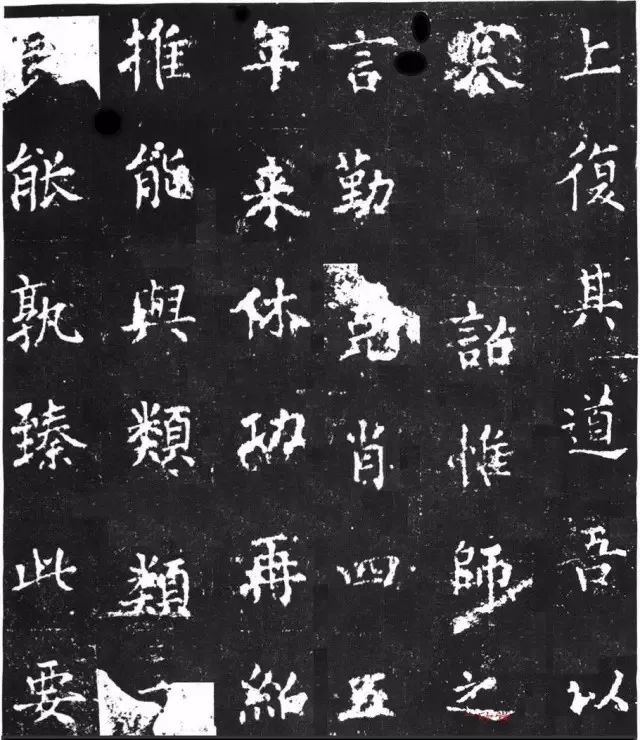 上復其道吾以
塞詔惟師之
言勤肖四五
年来休功再紹
推能與類類
能孰臻此要